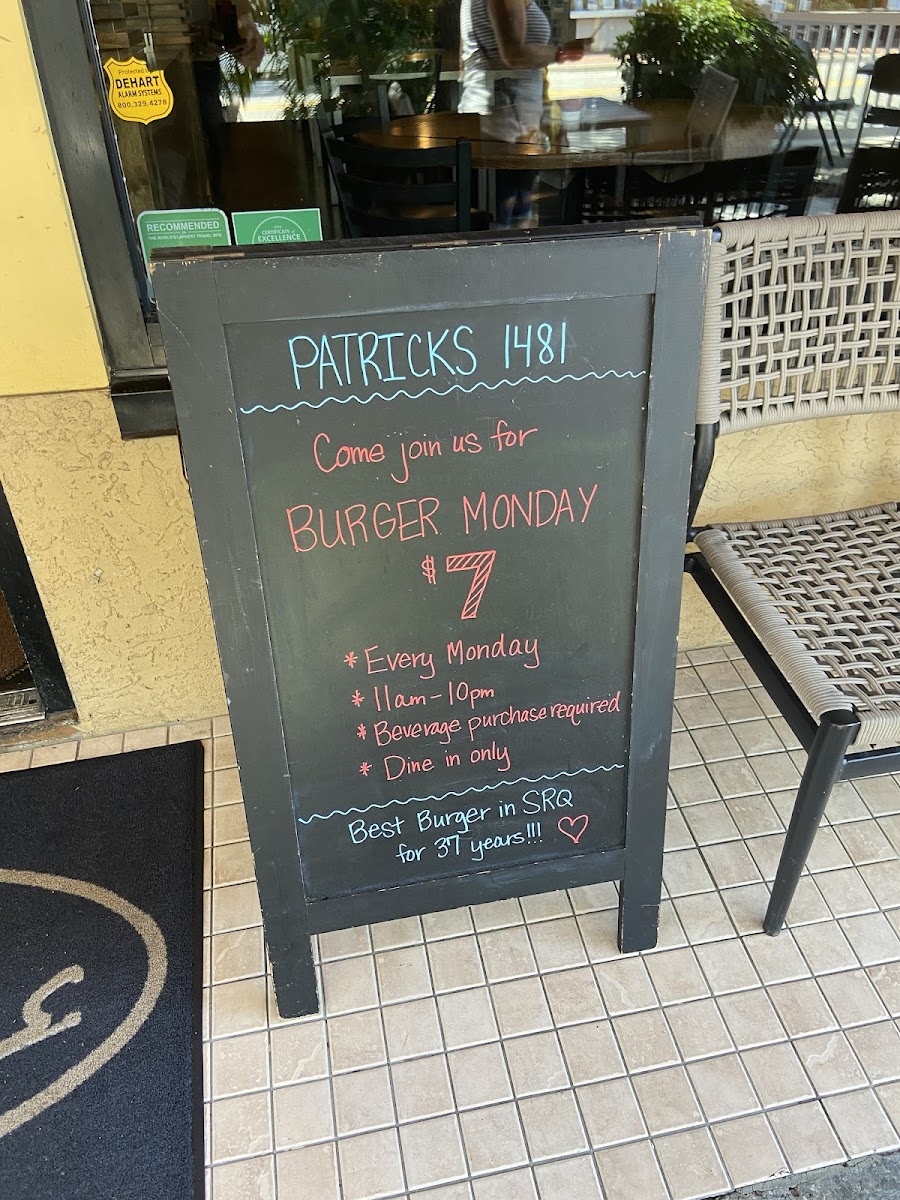 Protected by
DEHART
ALARM SYSTEMS
800.329.4278
RECOMMENDED
THE WORLD'S LARGEST TRAVEL SITE
CERTIFICATE of
EXCELLENCE
PATRICKS 1481
Come join us for
BURGER MONDAY
$7
* Every Monday
* 11am-10pm
* Beverage purchase required
* Dine in only
Best Burger in SRQ
for 37 years!!! ♡